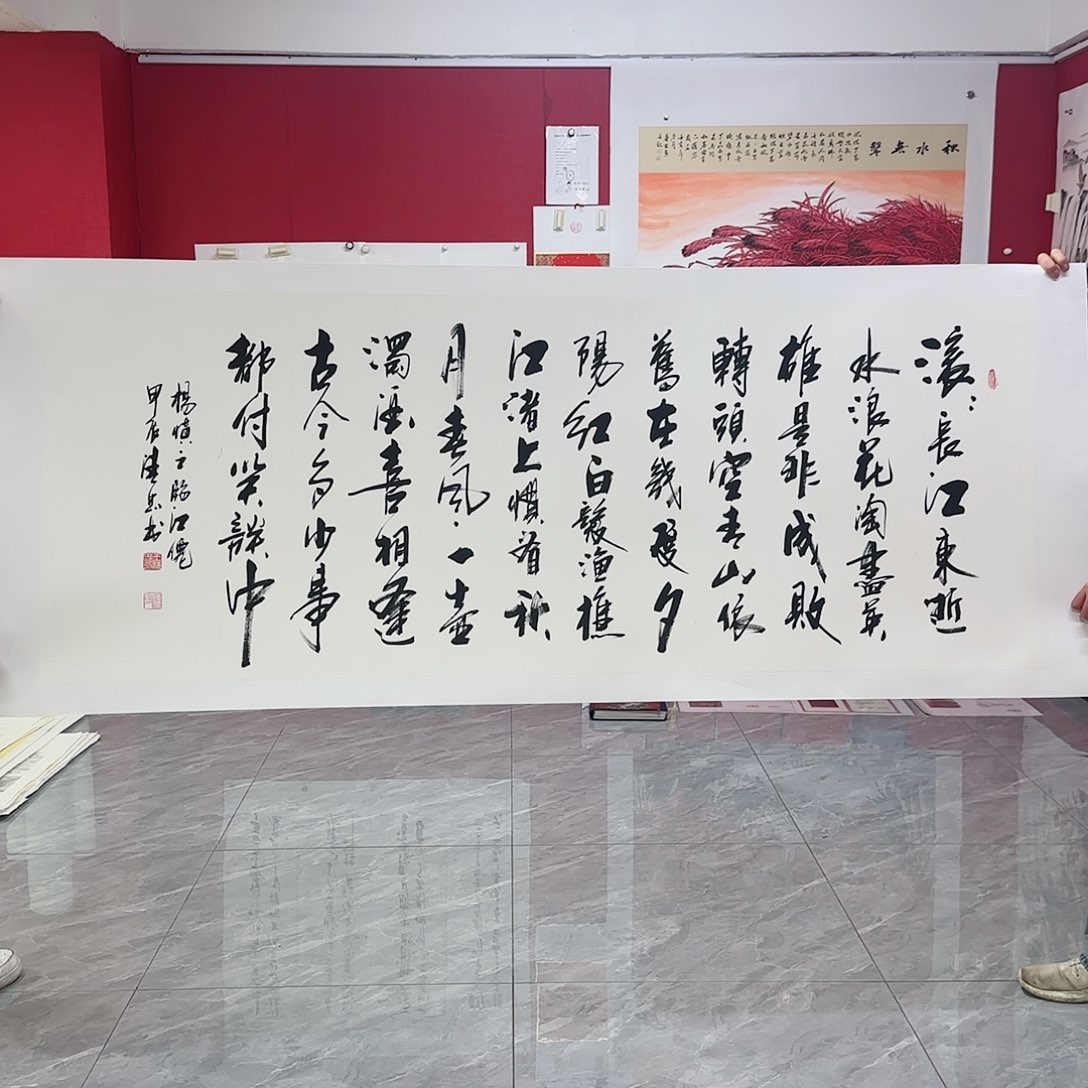 滚:長江東逝
水浪花淘盡英
雄是非成敗
轉頭空青山依
舊在幾度夕
陽紅白髮漁樵
江渚上慣看秋
月春風一壺
濁酒喜相逢
古今多少事
都付笑談中
楊慎之臨江僊
甲辰建兵书
秋水無聲